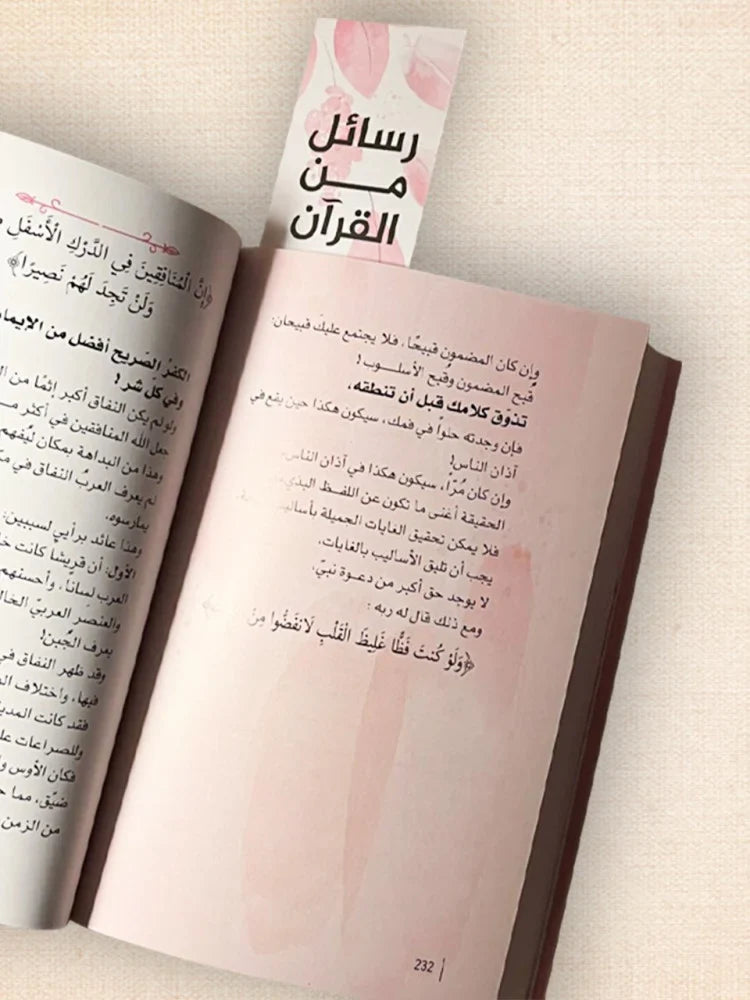 رسائل
مـــن
القرآن
وإن كان المضمون قبيحًا، فلا يجتمع عليك قبيحان:
قُبح المضمون وقُبح الأسلـــوب!
تذوّق كلامك قبل أن تنطقه،
فإن وجدته حلواً في فمك، سيكون هكذا حين يقع في
آذان الناس!
وإن كان مُرًّا، سيكون هكذا في آذان الناس،
الحقيقة أغنى ما تكون عن اللفظ البذيء،
فلا يمكن تحقيق الغايات الجميلة بأساليب
يجب أن تليق الأساليب بالغايات،
لا يوجد حق أكبر من دعوة نبيّ،
ومع ذلك قال له ربه :
﴿وَلَوْ كُنتَ فَظًّا غَلِيظَ الْقَلْبِ لَانفَضُّوا مِنْ
232
﴿إِنَّ الْمُنَافِقِينَ فِي الدَّرْكِ الْأَسْفَلِ
وَلَنْ تَجِدَ لَهُمْ نَصِيرًا﴾
الكفرُ الصّريح أفضل من الإيما
وفي كلّ شر!
ولو لم يكن النفاق أكبر إثمًا من
جعل الله المنافقين في أكثر
وهذا من البداهة بمكان ليُفهم
لم يعرف العربُ النفاق في
يمارسوه.
وهذا عائد برأيي لسببين:
الأول: أن قريشًا كانت
العرب لِسانًا، وأحسنهم
والعنصر العربيّ
يعرف الجُبن!
وقد ظهر النفاق في
فيها، واختلاف
فقد كانت المدين
وللصراعات
فكان الأوس
ضيّق، مما
من الزمن